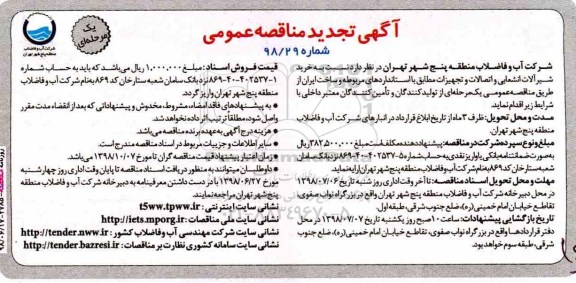 آگهی تجدید مناقصه عمومی
شماره ۹۸/۲۹
یک مرحله‌ای
شرکت آب و فاضلاب
منطقه پنج شهر تهران
شرکت آب و فاضلاب منطقه پنج شهر تهران در نظر دارد: نسبت به خرید
شیرآلات انشعابی و اتصالات و تجهیزات مطابق با استانداردهای مربوطه و ساخت ایران از
طریق مناقصه عمومی یک مرحله‌ای از تولیدکنندگان و تأمین‌کنندگان معتبر داخلی با
شرایط زیر اقدام نماید.
مدت و محل تحویل: ظرف ۳ ماه از تاریخ ابلاغ قرارداد در انبارهای شرکت آب و فاضلاب
منطقه پنج شهر تهران.
مبلغ و نوع سپرده شرکت در مناقصه: پیشنهاددهنده مکلف است مبلغ ۳۸۲,۵۰۰,۰۰۰ ریال
به صورت ضمانتنامه بانکی یا واریز نقدی به حساب شماره ۵-۴۰۲۵۳۷-۴۰-۸۶۹ نزد بانک سامان
شعبه ستارخان کد ۸۶۹ به نام شرکت آب و فاضلاب منطقه پنج شهر تهران ارایه نماید.
مهلت و محل تحویل اسناد مناقصه: تا آخر وقت اداری روز شنبه تاریخ ۱۳۹۸/۰۷/۰۶
در محل دبیرخانه شرکت آب و فاضلاب منطقه پنج شهر تهران واقع در بزرگراه نواب صفوی
تقاطع خیابان امام خمینی (ره)، ضلع جنوب شرقی، طبقه اول.
تاریخ بازگشایی پیشنهادات: ساعت ۱۰ صبح روز یکشنبه تاریخ ۱۳۹۸/۰۷/۰۷ در محل
دفتر قراردادها واقع در بزرگراه نواب صفوی، تقاطع خیابان امام خمینی (ره)، ضلع جنوب
شرقی، طبقه سوم خواهد بود.
قیمت فروش اسناد: مبلغ ۱,۰۰۰,۰۰۰ ریال می‌باشد که باید به حساب شماره
۱-۴۰۲۵۳۷-۴۰-۸۶۹ نزد بانک سامان شعبه ستارخان کد ۸۶۹ به نام شرکت آب و فاضلاب
منطقه پنج شهر تهران واریز گردد.
* به پیشنهادهای فاقد امضاء، مشروط، مخدوش و پیشنهاداتی که بعد از انقضاء مدت مقرر
واصل شود، مطلقاً ترتیب اثر داده نخواهد شد.
* هزینه درج آگهی به عهده برنده مناقصه می‌باشد.
* سایر اطلاعات و جزییات مربوط در اسناد مناقصه مندرج است.
* زمان اعتبار پیشنهاد قیمت مناقصه گران تا مورخ ۱۳۹۸/۱۰/۰۷ می‌باشد.
* داوطلبان می‌توانند به منظور دریافت اسناد مناقصه تا پایان وقت اداری روز چهارشنبه
مورخ ۱۳۹۸/۰۶/۲۷ با در دست داشتن معرفینامه به دبیرخانه شرکت آب و فاضلاب منطقه
پنج شهر تهران مراجعه نمایند.
نشانی سایت اینترنتی: t5ww.tpww.ir
نشانی سایت ملی مناقصات: http://iets.mporg.ir
نشانی سایت شرکت مهندسی آب و فاضلاب کشور: http://tender.nww.ir
نشانی سایت سامانه کشوری نظارت بر مناقصات: http://tender.bazresi.ir